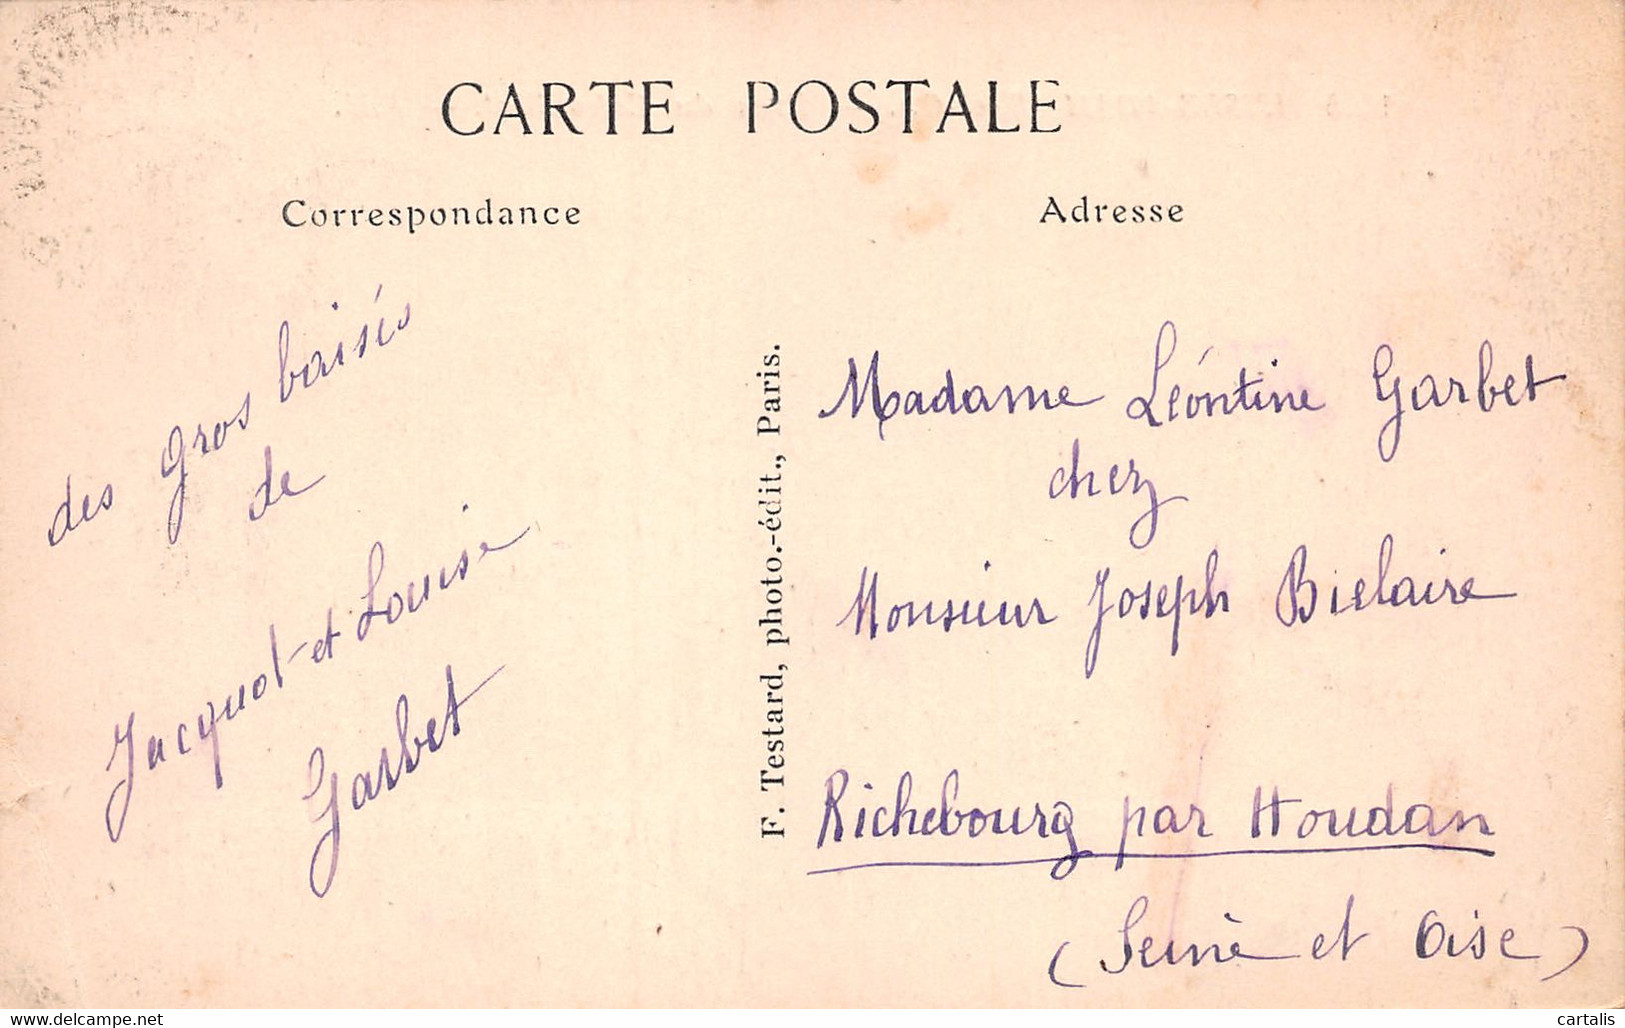 CARTE POSTALE
Correspondance
des gros baisés
de
Jacquot et Louise
Garbet
F. Testard, photo.-édit., Paris.
Adresse
Madame Léontine Garbet
chez
Monsieur Joseph Bielaire
Richebourg par Houdan
(Seine et Oise)
delcampe.net
cartalis